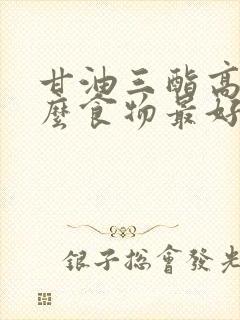 甘油三酯高
麼食物最好
銀子總會發光